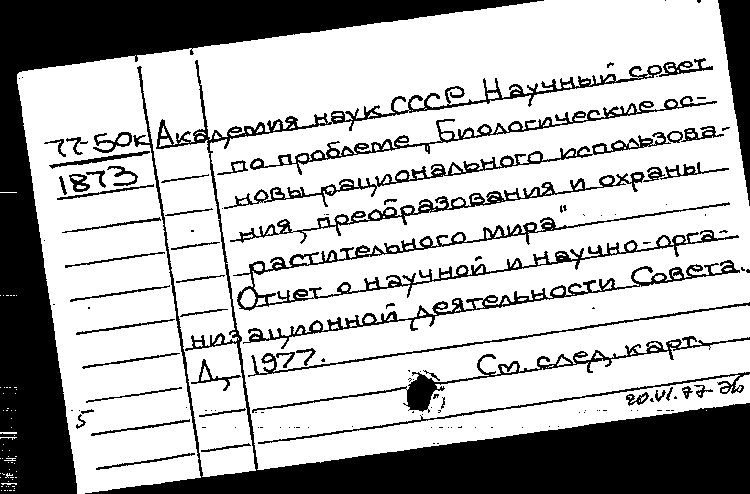 77-50к Академия наук СССР. Научный совет
1873 по проблеме „Биологические ос-
новы рационального использова-
ния, преобразования и охраны
растительного мира".
Отчет о научной и научно-орга-
низационной деятельности Совета.
Л., 1977.
См. след. карт.
5
20.VI.77-